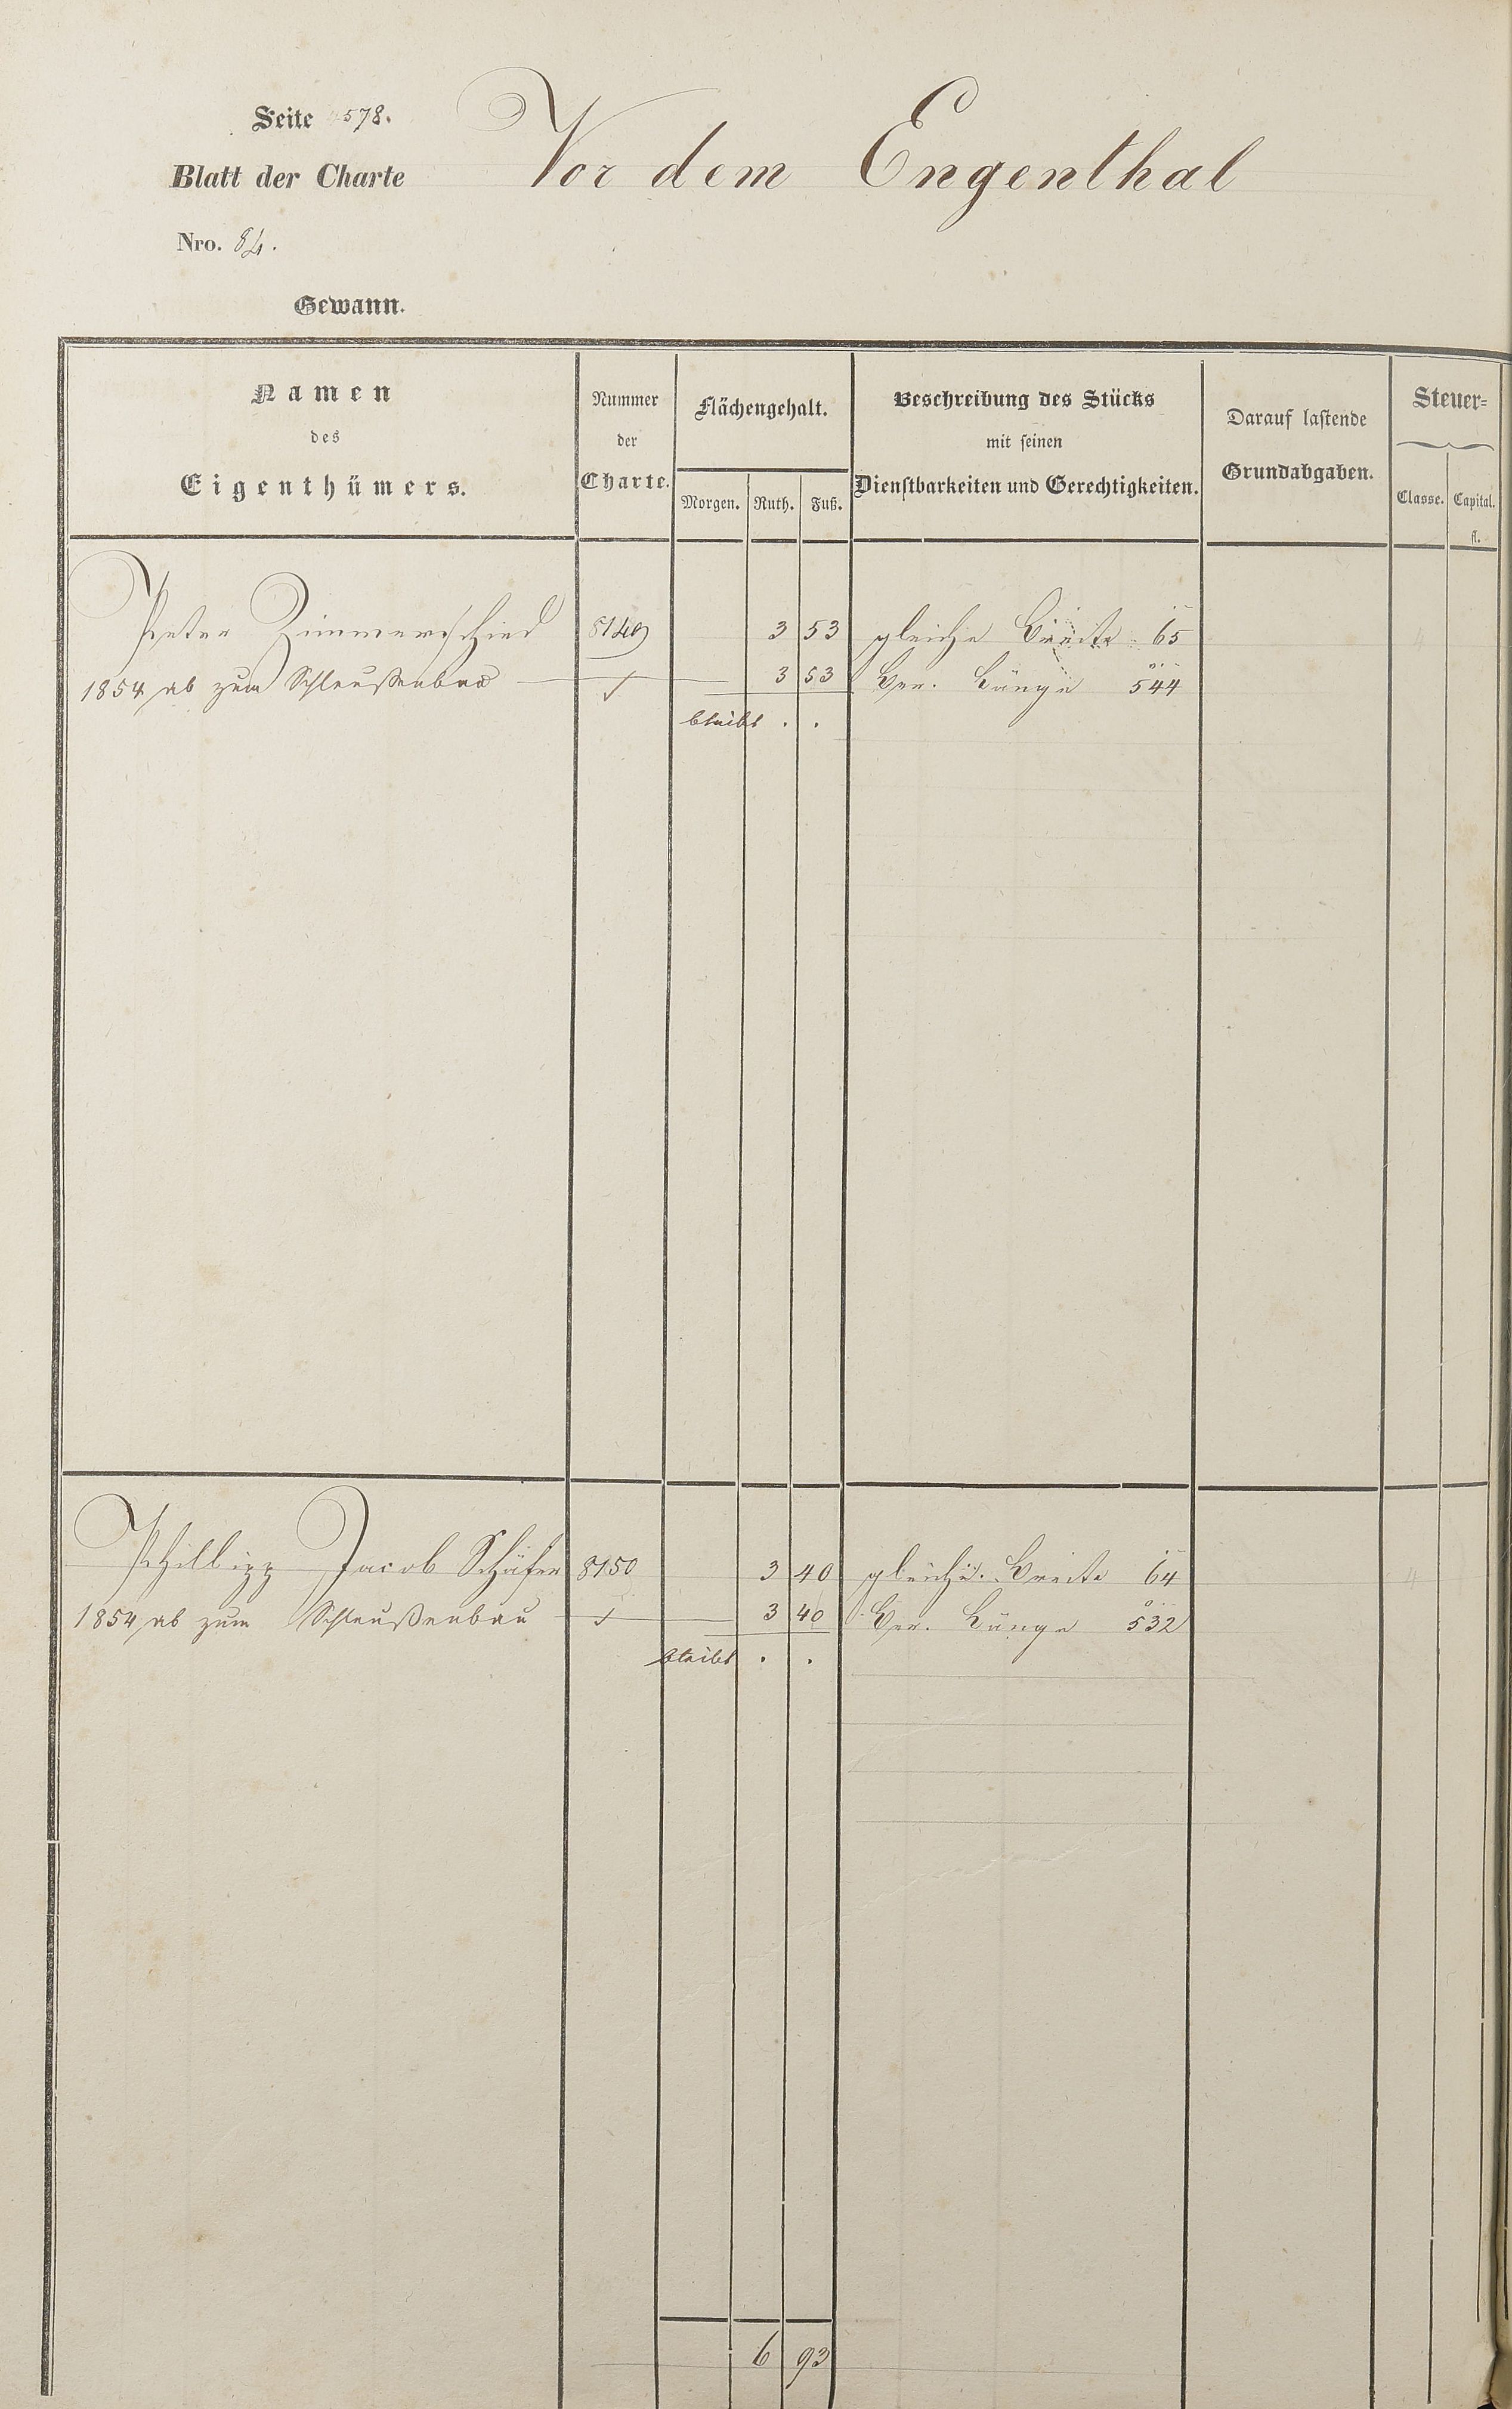 Seite 578.
Vor dem Engenthal
Blatt der Charte
Nro. 84.
Gewann.
Namen
des
Eigenthümers.
Nummer
der
Charte.
Flächengehalt.
Morgen. Ruth. Fuß.
Beschreibung des Stücks
mit seinen
Dienstbarkeiten und Gerechtigkeiten.
Darauf lastende
Grundabgaben.
Steuer=
Classe. Capital.
fl.
Peter Zimmerschied 8149 3 53 gleiche Breite 65
1854 ab zum Schleußenbau 3 53 Ver. Länge 544
bleibt . .
Phillipp Jacob Schäfer 8150 3 40 gleiche Breite 64 4
1854 ab zum Schleußenbau 3 40 Ver. Länge 532
bleibt . .
6 93